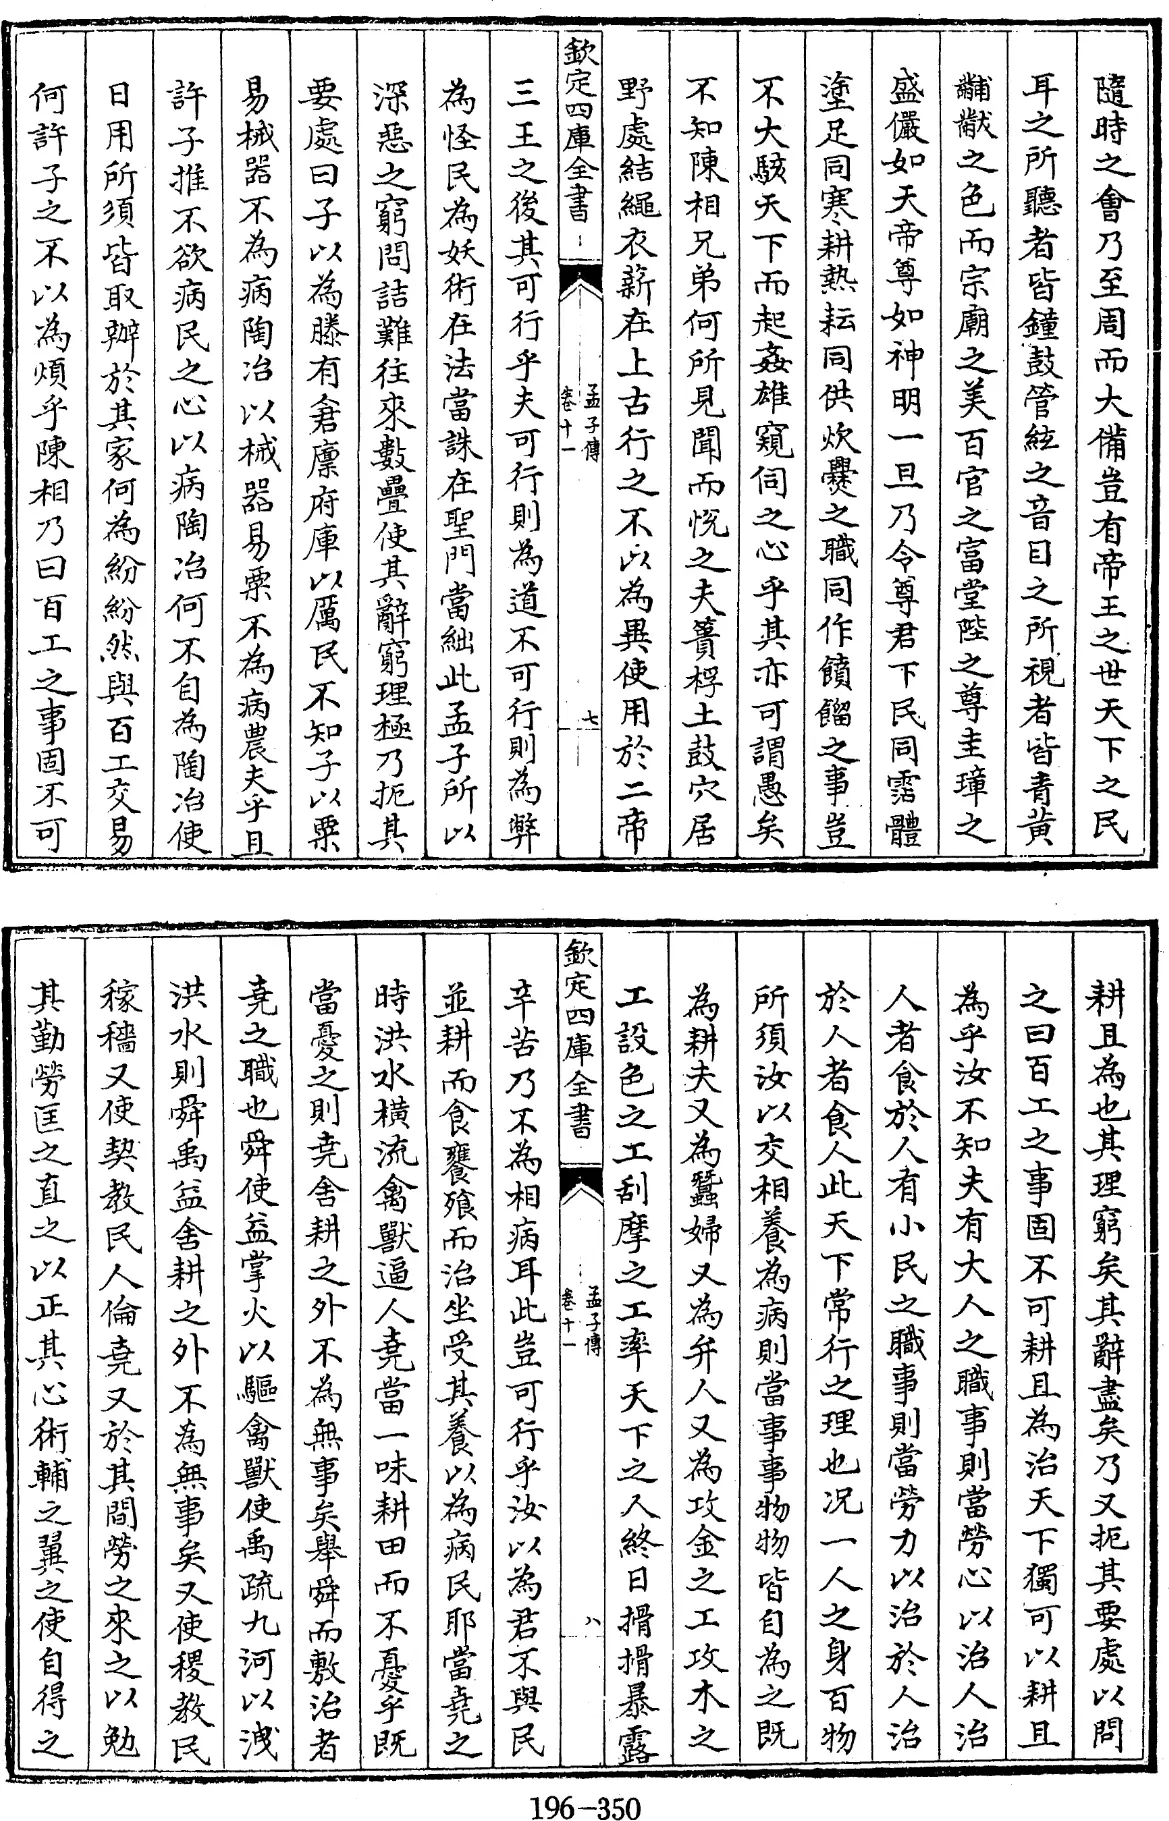 隨時之會乃至周而大備豈有帝王之世天下之民
耳之所聽者皆鐘鼓管絃之音目之所視者皆青黃
黼黻之色而宗廟之美百官之富堂陛之尊圭璋之
盛儼如天帝尊如神明一旦乃令尊君下民同霑體
塗足同寒耕熱耘同供炊爨之職同作饋餾之事豈
不大駭天下而起姦雄窺伺之心乎其亦可謂愚矣
不知陳相兄弟何所見聞而悅之夫蕢桴土鼓穴居
野處結繩衣薪在上古行之不以為異使用於二帝
欽定四庫全書
孟子傳
卷十一
七
三王之後其可行乎夫可行則為道不可行則為弊
為怪民為妖術在法當誅在聖門當絀此孟子所以
深惡之窮問詰難往來數疊使其辭窮理極乃扼其
要處曰子以為滕有倉廪府庫以厲民不知子以粟
易械器不為病陶冶以械器易粟不為病農夫乎且
許子推不欲病民之心以病陶冶何不自為陶冶使
日用所須皆取辦於其家何為紛紛然與百工交易
何許子之不以為煩乎陳相乃曰百工之事固不可
耕且為也其理窮矣其辭盡矣乃又扼其要處以問
之曰百工之事固不可耕且為治天下獨可以耕且
為乎汝不知夫有大人之職事則當勞心以治人治
人者食於人有小民之職事則當勞力以治於人治
於人者食人此天下常行之理也况一人之身百物
所須汝以交相養為病則當事事物物皆自為之既
為耕夫又為蠶婦又為弁人又為攻金之工攻木之
工設色之工刮摩之工率天下之人終日搰搰暴露
欽定四庫全書
孟子傳
卷十一
八
辛苦乃不為相病耳此豈可行乎汝以為君不與民
並耕而食饔飱而治坐受其養以為病民耶當堯之
時洪水橫流禽獸逼人堯當一味耕田而不憂乎既
當憂之則堯舍耕之外不為無事矣舉舜而敷治者
堯之職也舜使益掌火以驅禽獸使禹疏九河以洩
洪水則舜禹益舍耕之外不為無事矣又使稷教民
稼穡又使契教民人倫堯又於其間勞之來之以勉
其勤勞匡之直之以正其心術輔之翼之使自得之
196-350